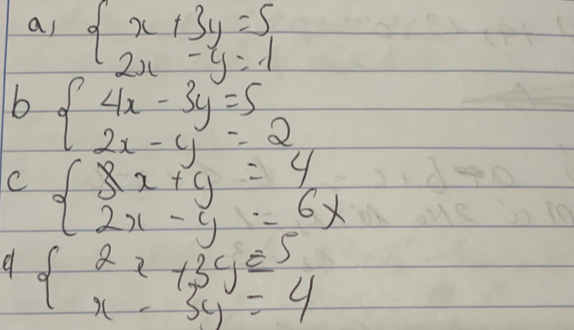 a, { x + 3y = 5
2x - y = 1
b { 4x - 3y = 5
2x - y = 2
c { 3x + y = 4
2x - y = 6
d { 2x + 3y = 5
x - 3y = 4